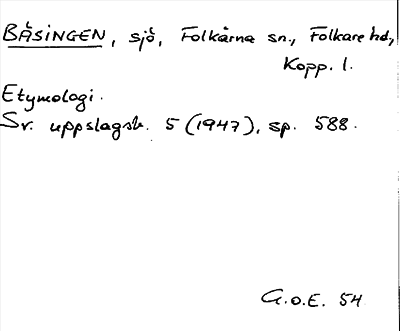 BÄSINGEN, sjö, Folkärna sn., Folkare hd,
Kopp. l.
Etymologi.
Sv. uppslagsb. 5 (1947), sp. 588.
G.O.E. 54